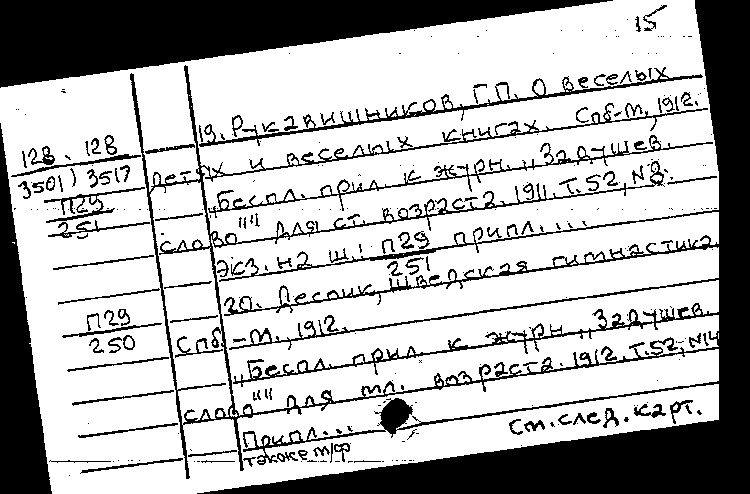 15
19. Рукавишников, Г.П. О веселых
128. 128 детях и веселых книгах. Спб-М., 1912.
3501) 3517 „Беспл. прил. к журн. „Задушев.
П29
251 слово"" для ст. возраста. 1911. Т.52, N8.
экз. на ш.: П29
251 припл....
20. Деспик, Шведская гимнастика.
П29
250 Спб-М., 1912.
„Беспл. прил. к журн „Задушев.
слово"" для мл. возраста. 1912. Т.52, N14
Припл...
также м/ф
См. след. карт.